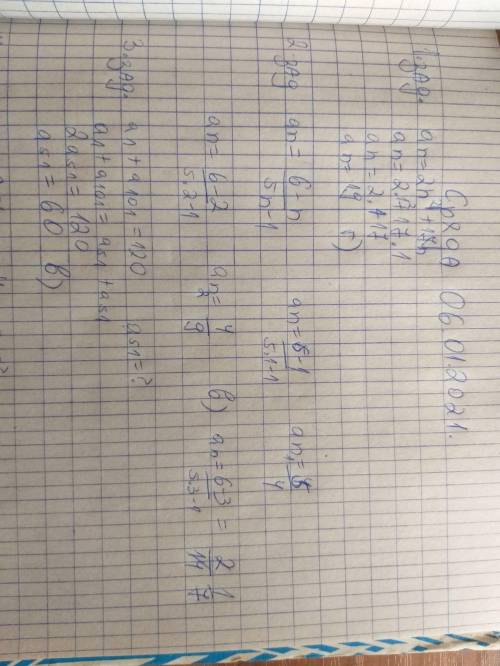 Сряда 06.01.2021.
1. зад. an = 2n² + 17n
an = 2.1² + 17.1
an = 2.1 + 17
an = 19 б)
2. зад an = 6-n/5n-1 an = 6-1/5.1-1 an₁ = 5/4
an = 6-2/5.2-1 an₂ = 4/9 в) an = 6-3/5.3-1 = 2/14 1/7
3. зад. a1 + a101 = 120 a51 = ?
a1 + a101 = a51 + a51
2a51 = 120
a51 = 60 в)